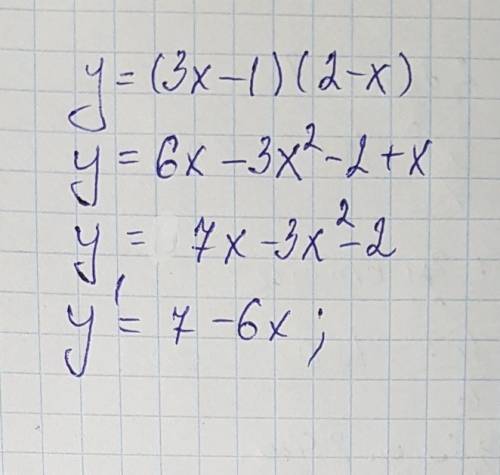 y = (3x - 1)(2 - x)
y = 6x - 3x² - 2 + x
y = 7x - 3x² - 2
y' = 7 - 6x ;